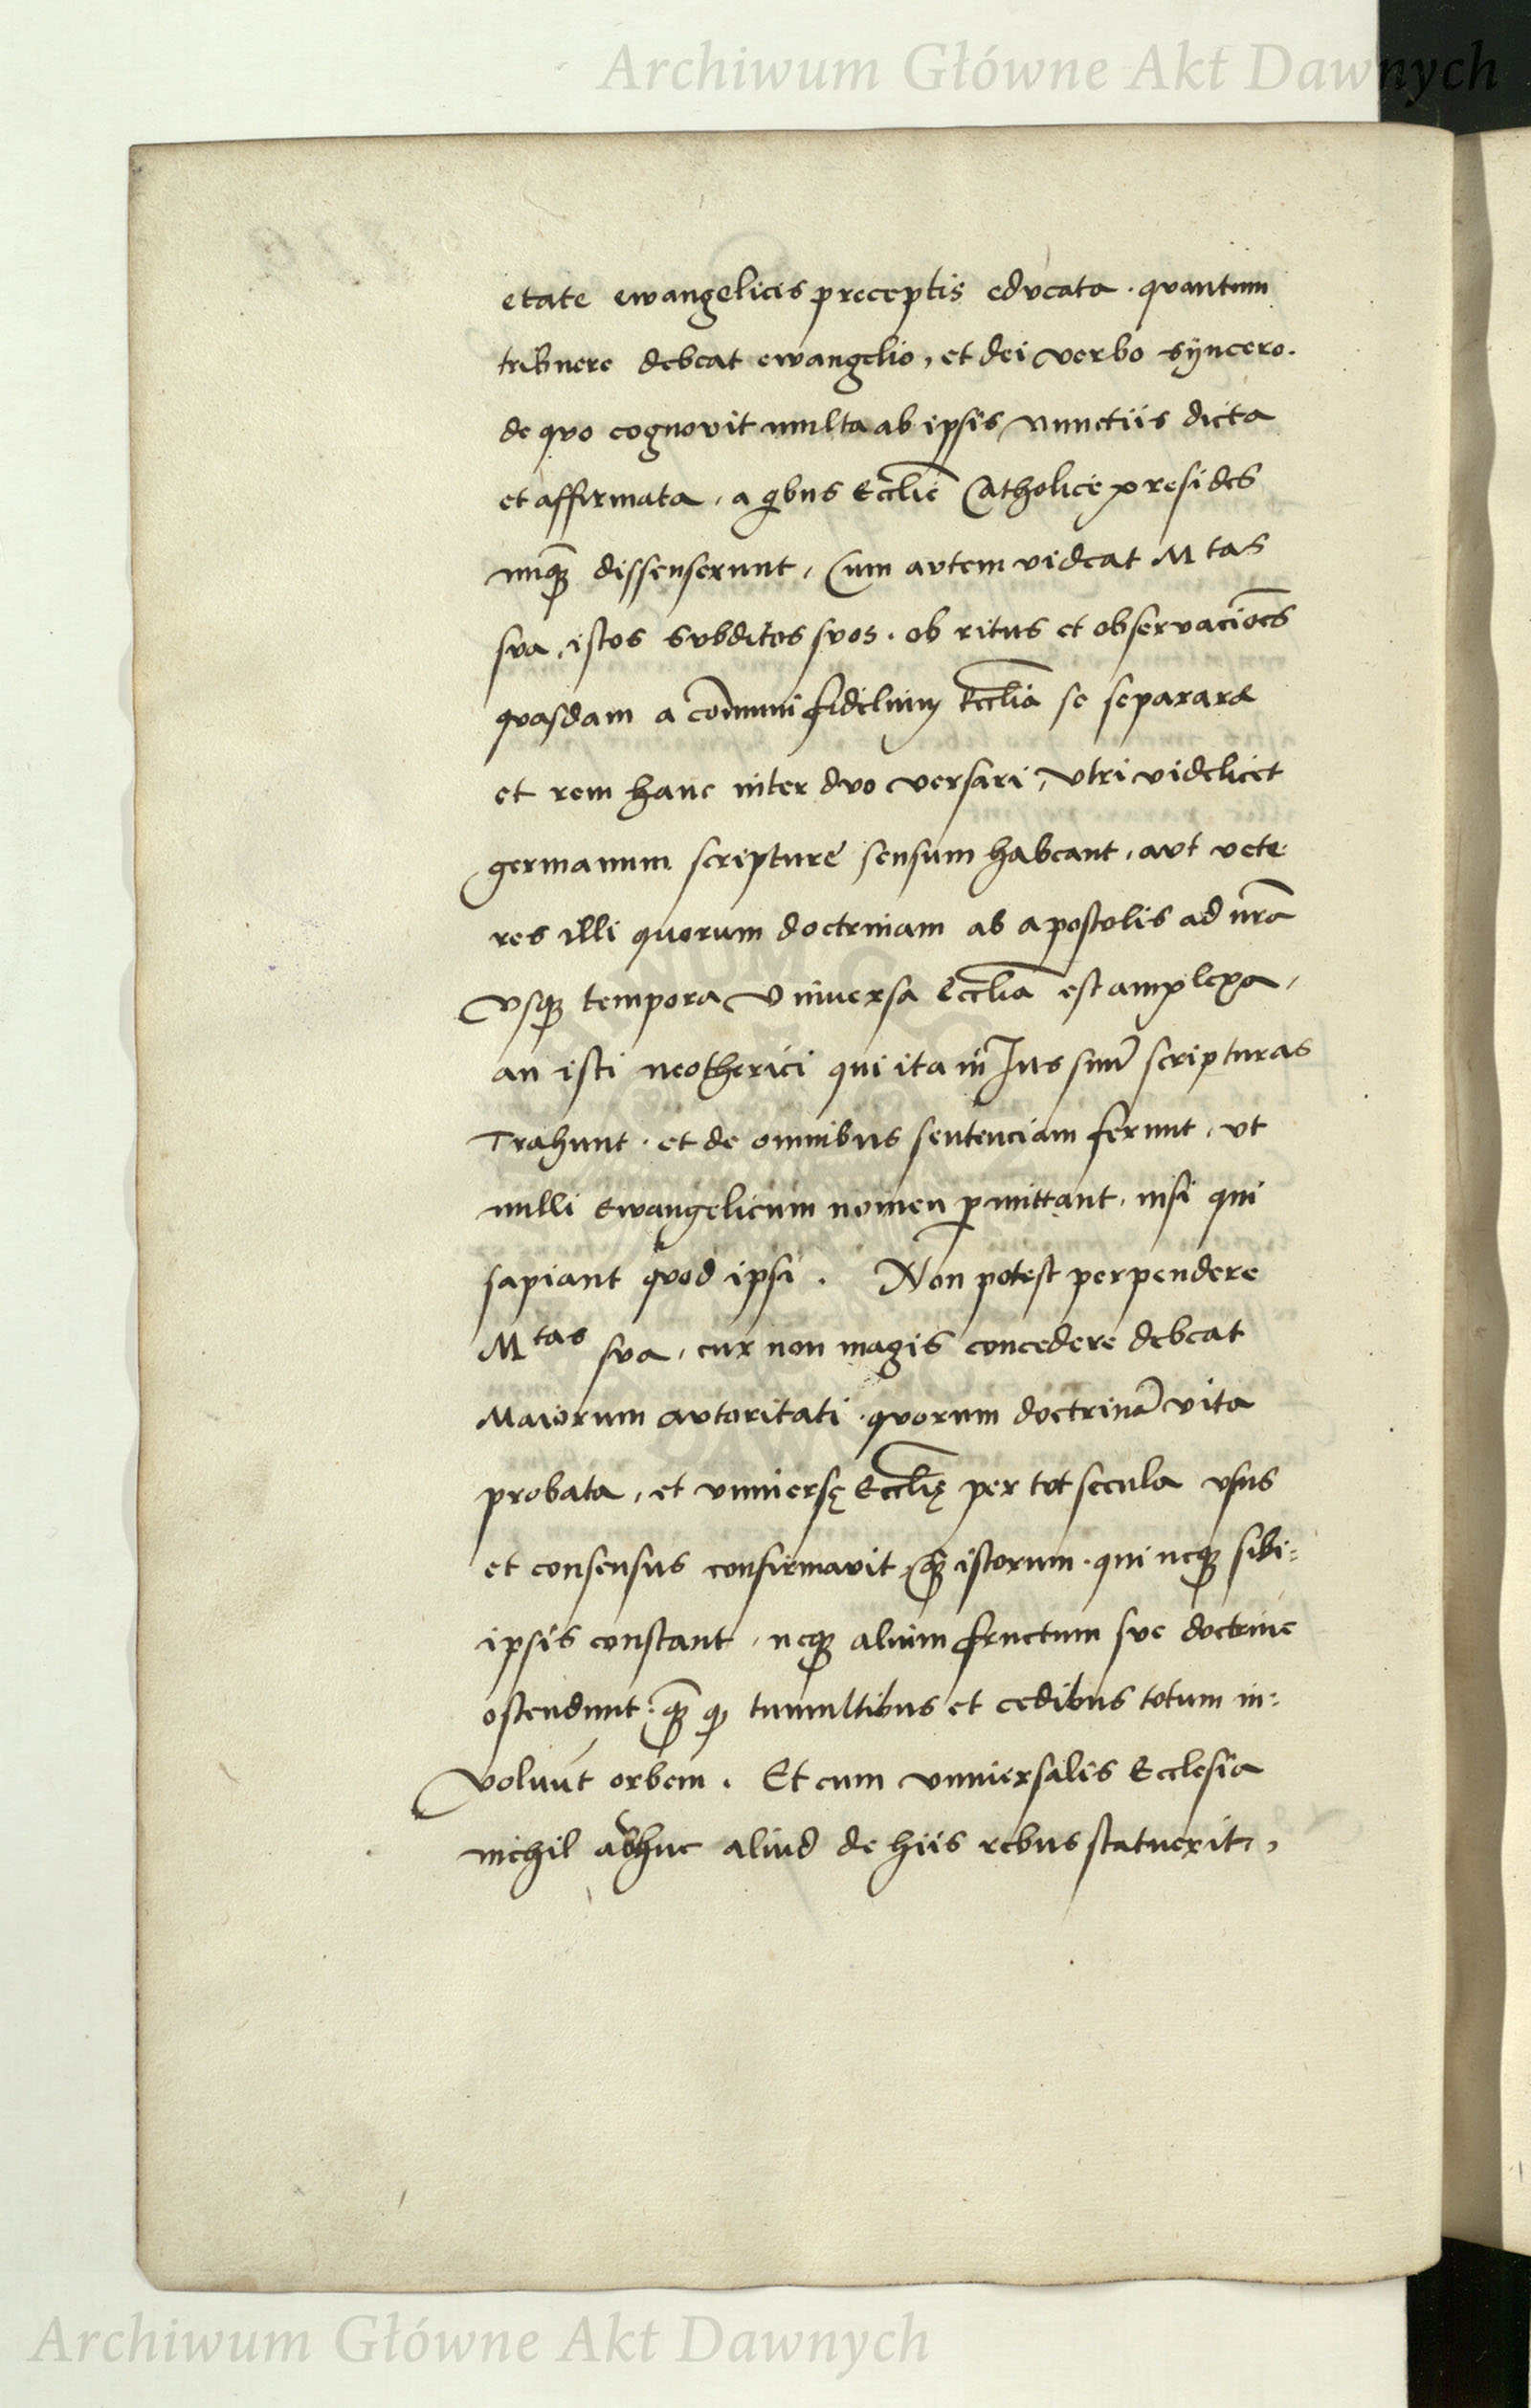 Archiwum Główne Akt Dawnych
etate ewangelicis preceptis educata . quantum
tribuere debeat ewangelio, et dei verbo syncero.
de quo cognovit multa ab ipsis nunctiis dicta
et affirmata, a qibus Ecclie Catholice presides
nunq̃ dissenserunt, Cum autem videat Mtas
sua, istos subditos suos . ob ritus et observaciones
quasdam a cõmuni fidelium Ecclia se separare
et rem hanc inter duo versari, utri videlicet
germanum scripture sensum habeant, aut vete
res illi quorum doctrinam ab apostolis ad nrã
usq; tempora Universa Ecclia est amplexa,
an isti neotherici qui ita in Jus suũ scripturas
Trahunt . et de omnibus sentenciam ferunt, ut
nulli Ewangelicum nomen pmittant, nisi qui
sapiant quod ipsi . Non potest perpendere
Mtas sua, cur non magis concedere debeat
Maiorum autoritati . quorum doctrinã vita
probata, et universę Ecclię per tot secula usus
et consensus confirmavit, q̃ istorum . qui neq; sibi=
ipsis constant, neq; alium fructum sue doctrine
ostendunt : q̃ q; tumultibus et cedibus totum in=
volvũt orbem . Et cum universalis Ecclesia
nichil adhuc aliud de hiis rebus statuerit,
Archiwum Główne Akt Dawnych